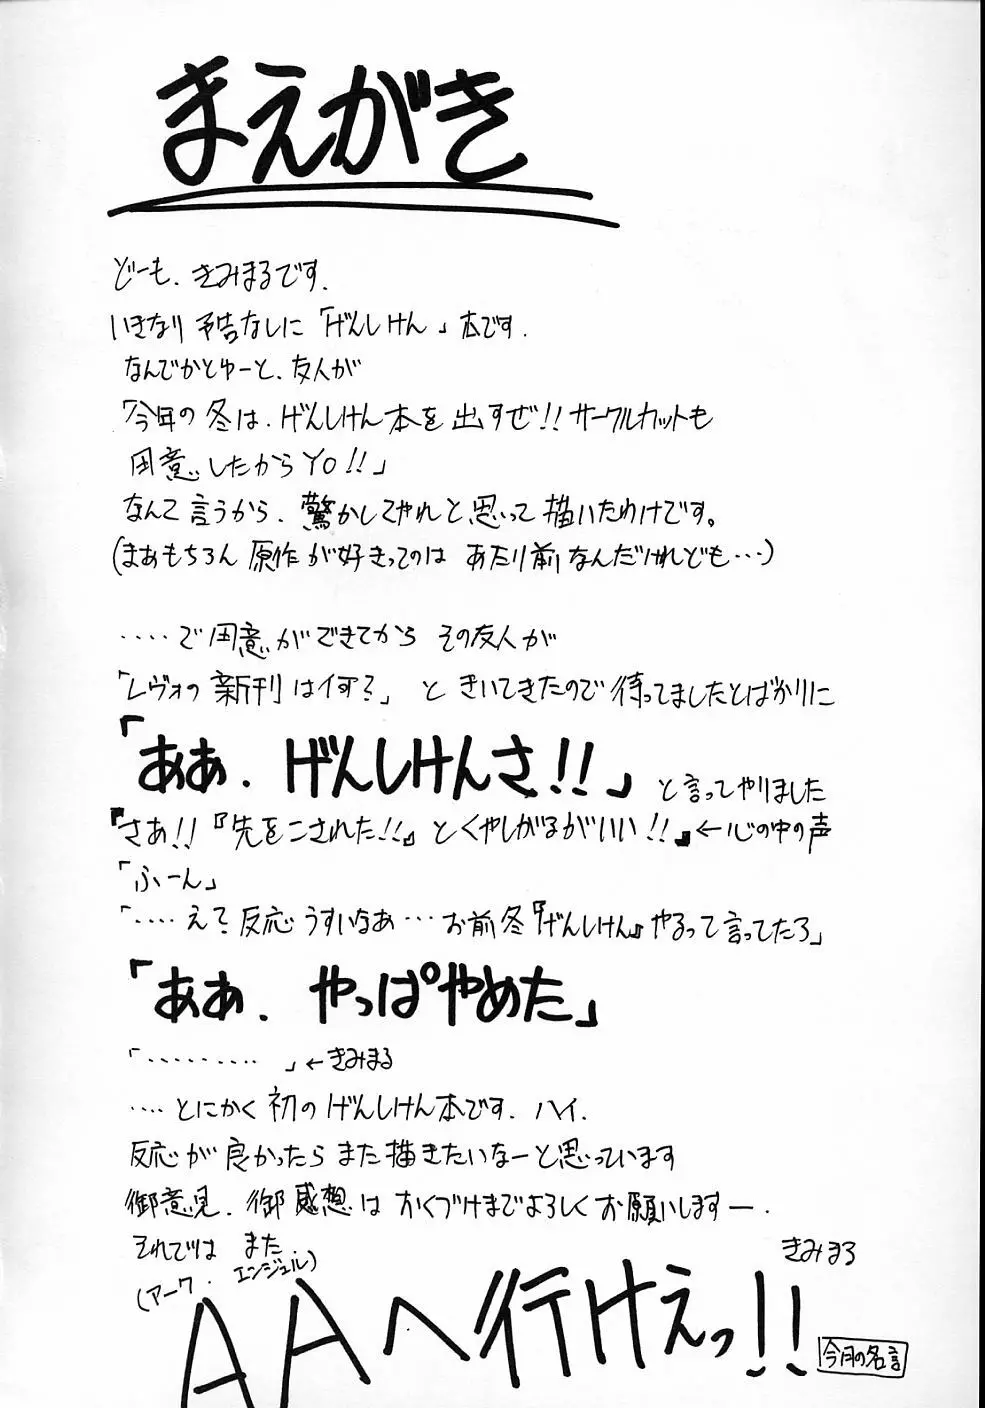 まえがき
どーも、きみまるです。
いきなり予告なしに「げんしけん」本です。
なんでかとゆーと、友人が
「今年の冬は、げんしけん本を出すぜ!!サークルカットも
用意したからYO!!」
なんて言うから、驚かしてやれと思って描いたわけです。
(まあもちろん原作が好きってのはあたり前なんだけれども…)
‥‥で用意ができてからその友人が
「レヴォの新刊は何?」ときいてきたので待ってましたとばかりに
「ああ、げんしけんさ!!」と言ってやりました
『さあ!!『先をこされた!!』とくやしがるがいい!!』←心の中の声
「ふーん」
「‥‥えて?反応うすいなあ…お前冬『げんしけん』やるって言ってたろ」
「ああ、やっぱやめた」
「‥‥‥‥‥」←きみまる
‥‥とにかく初のげんしけん本です。ハイ。
反応が良かったらまた描きたいなーと思っています
御意見、御感想はおくづけまでよろしくお願いしますー。
それではまた
きみまろ
(アーク・エンジェル)
AAへ行けえっ!!
今月の名言